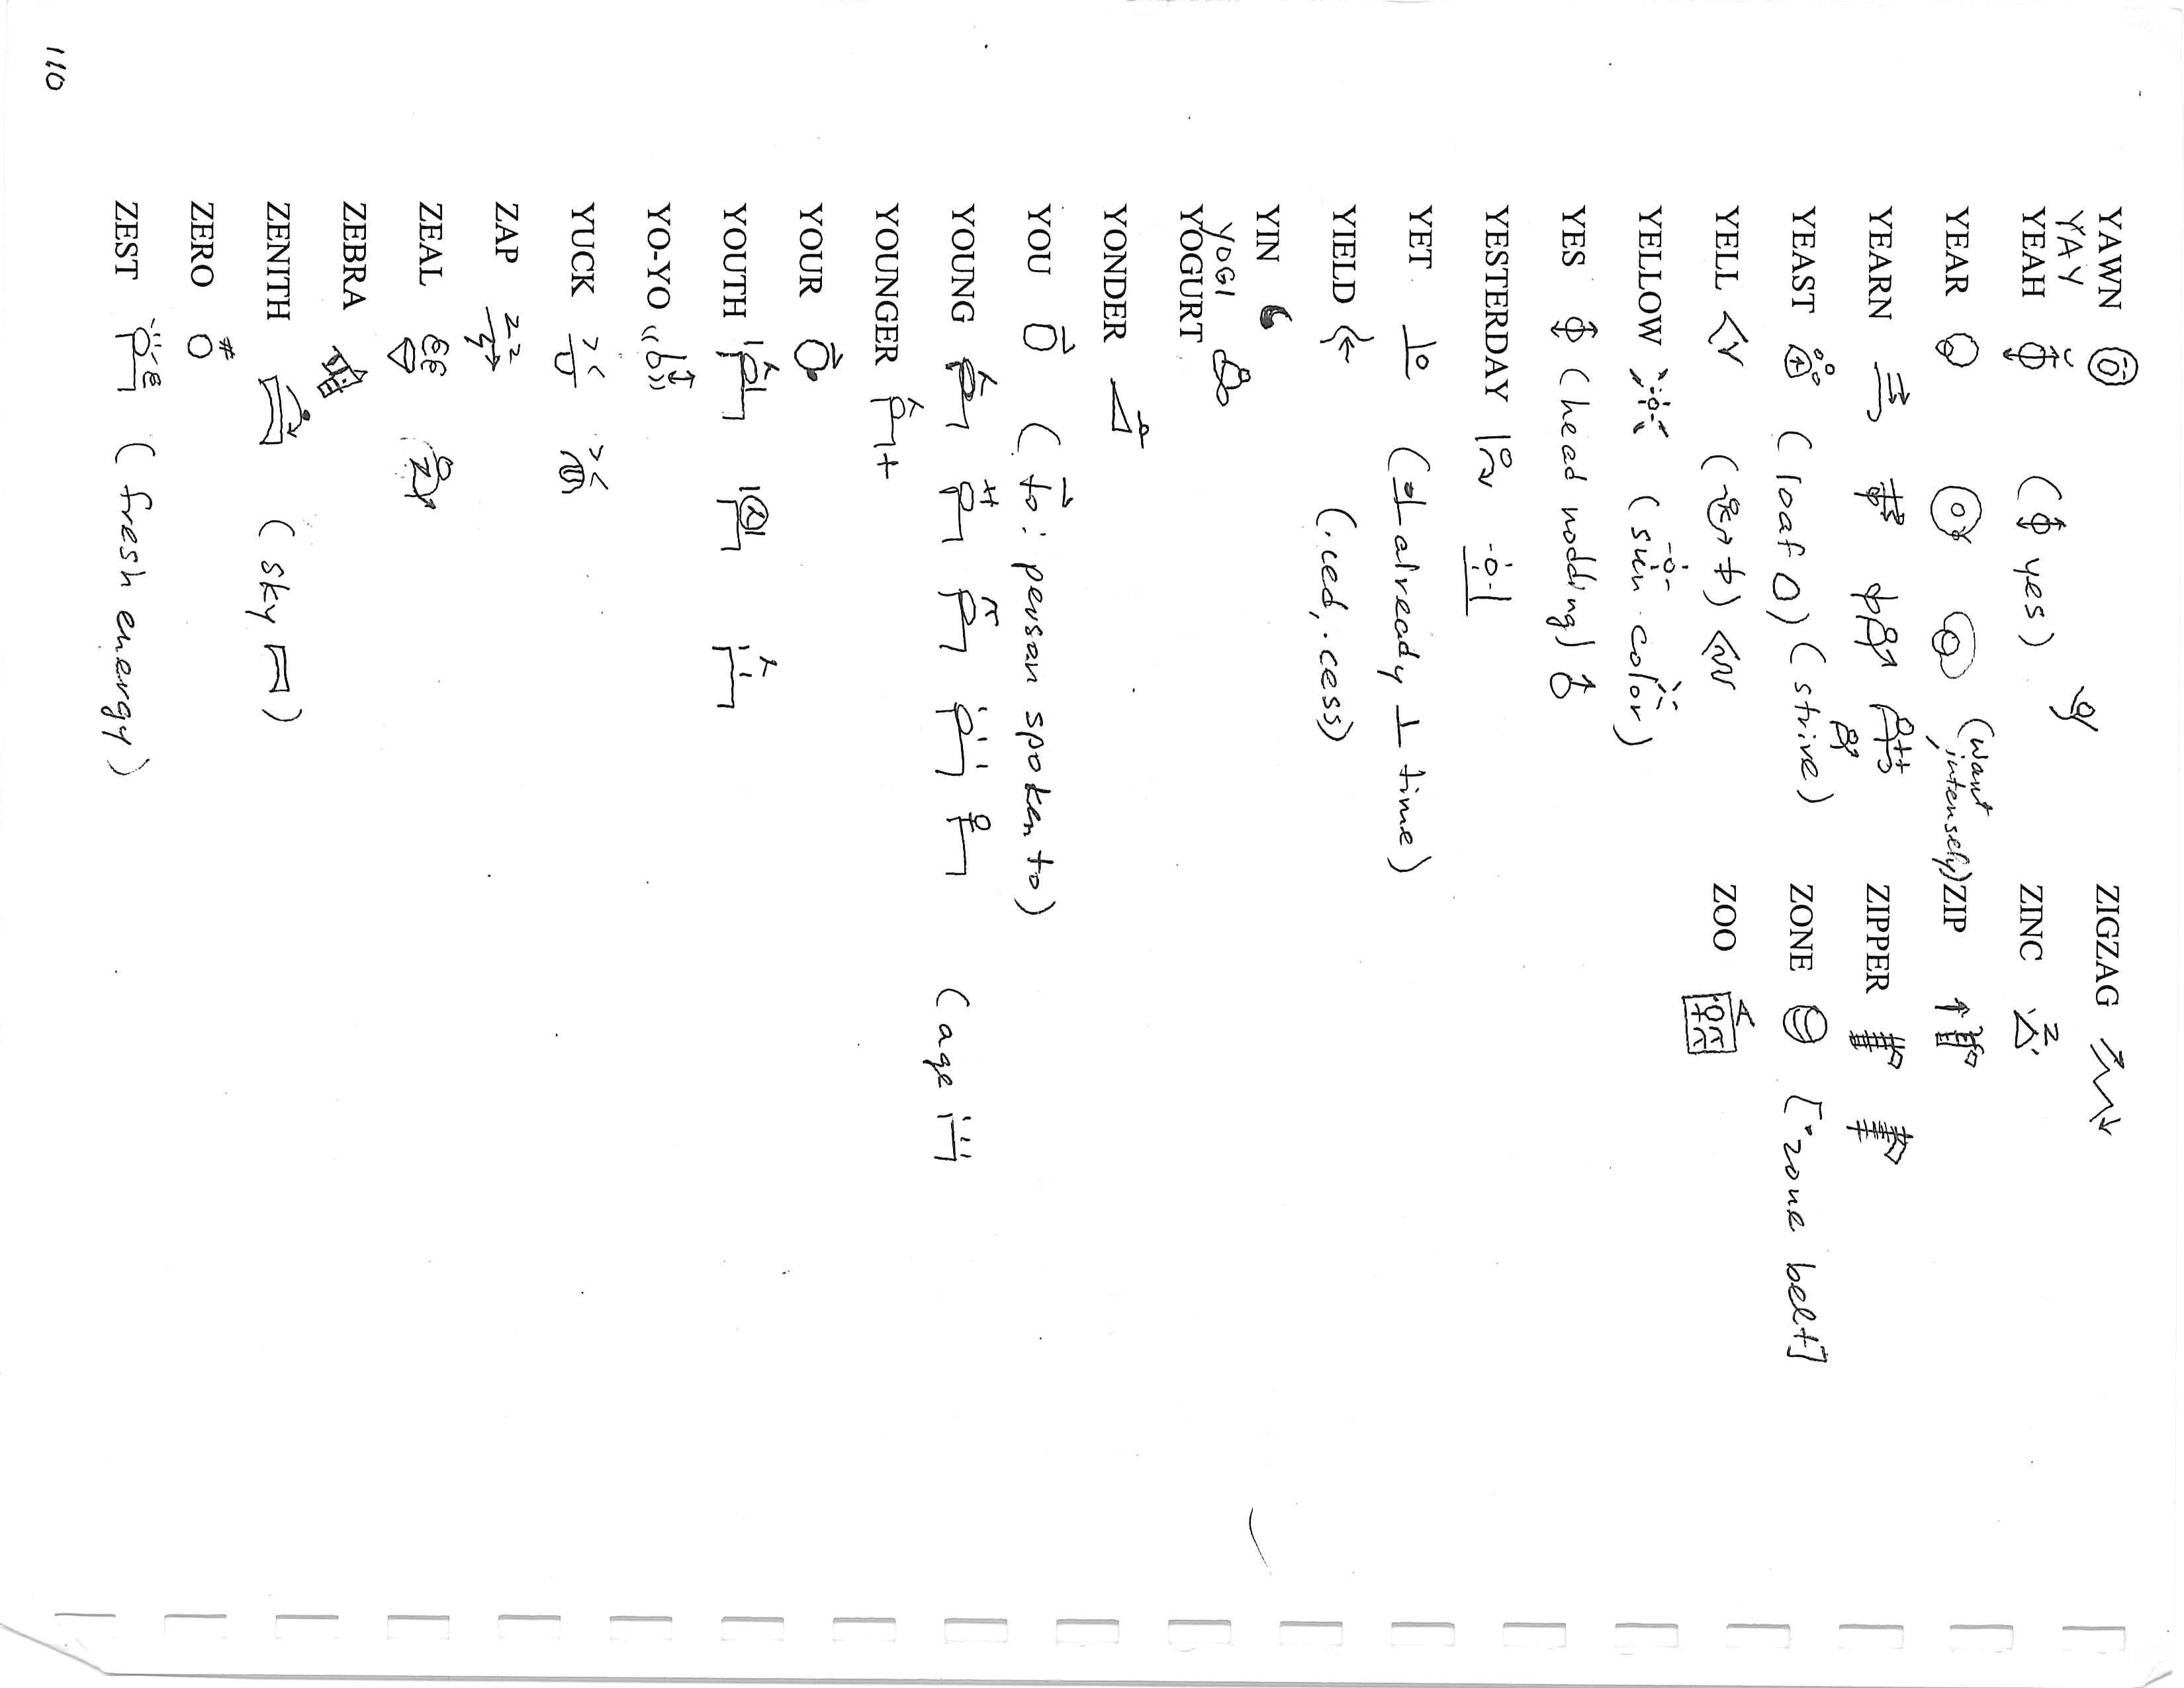 YAWN
YAY
YEAH (yes)
YEAR
YEARN (want intensely)
YEAST (loaf) (strive)
YELL
YELLOW (sun color)
YES (head nodding)
YESTERDAY
YET (already ⊥ time)
YIELD (.ced, .cess)
YIN
YOGI
YOGURT
YONDER
YOU (to: person spoken to)
YOUNG (age)
YOUNGER +
YOUR
YOUTH
YO-YO
YUCK
ZAP
ZEAL
ZEBRA
ZENITH (sky)
ZERO #
ZEST (fresh energy)
ZIGZAG
ZINC
ZIP
ZIPPER
ZONE [zone belt]
ZOO
110